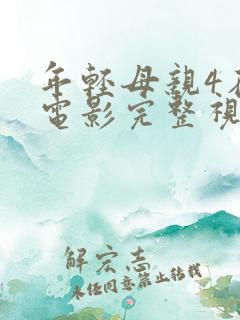 年輕母親4在
電影完整視
解宏志
未经同意禁止转载